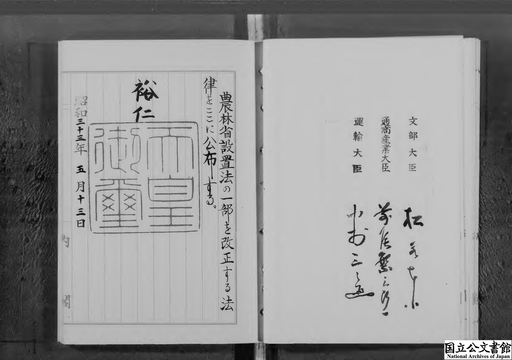 文部大臣
通商産業大臣
運輸大臣
農林省設置法の一部を改正する法
律をここに公布する。
裕仁
天皇
御璽
昭和三十三年五月十三日
内閣
国立公文書館
National Archives of Japan